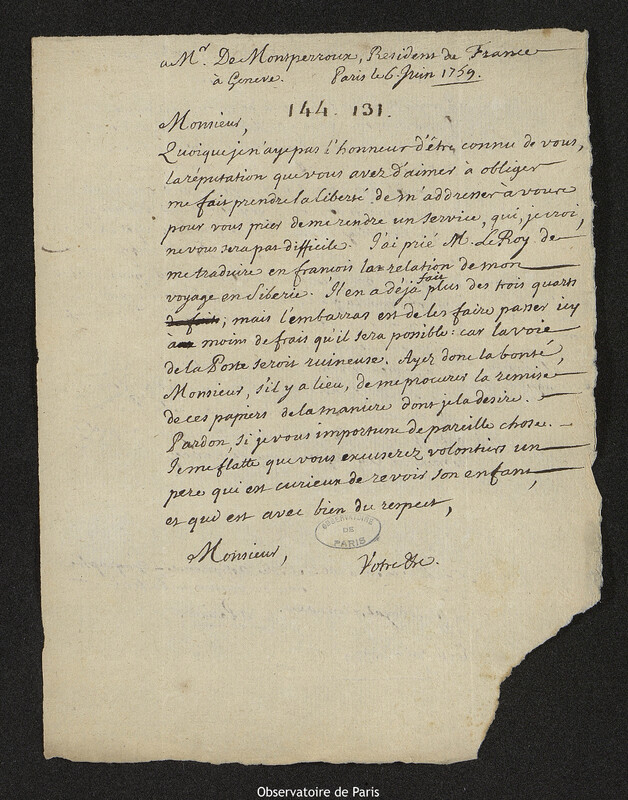 a Mr. De Montperroux, Resident de France
à Geneve. Paris le 6 Juin 1759.
144. 131.
Monsieur,
Quoique je n'aye pas l'honneur d'être connu de vous,
la réputation que vous avez d'aimer à obliger
me fait prendre la liberté de m'addresser à vous
pour vous prier de me rendre un service, qui, je croi,
ne vous sera pas difficile. J'ai prié M. Le Roy de
me traduire en françois la relation de mon
voyage en Siberie. Il en a déja fait plus des trois quarts
de fait; mais l'embarras est de les faire passer icy
au moins de frais qu'il sera possible: car la voie
de la Poste seroit ruineuse. Ayez donc la bonté,
Monsieur, s'il y a lieu, de me procurer la remise
de ces papiers de la maniere dont je la desire.
Pardon, si je vous importune de pareille chose.
Je me flatte que vous excuserez volontiers un
pere qui est curieux de revoir son enfant,
et qui est avec bien du respect,
Monsieur, Votre &c.
OBSERVATOIRE
DE
PARIS
Observatoire de Paris